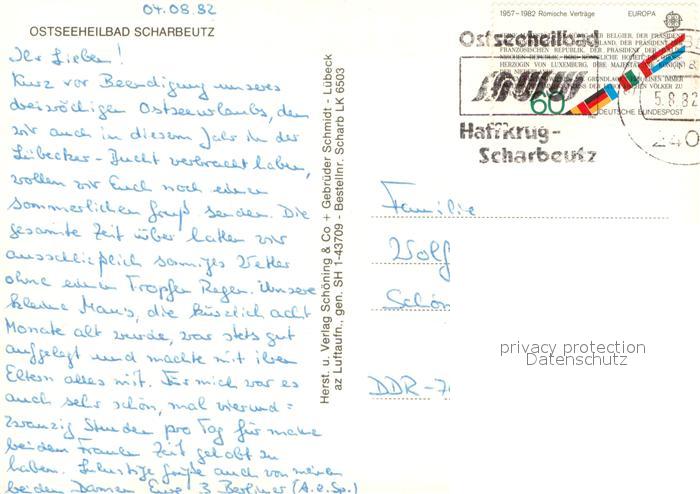 04.08.82
OSTSEEHEILBAD SCHARBEUTZ
Ihr Lieben!
Kurz vor Beendigung unseres
dreiwöchigen Ostseeurlaubs, den
wir auch in diesem Jahr in der
Lübecker-Bucht verbracht haben,
wollen wir Euch noch einen
sommerlichen Gruß senden. Die
gesamte Zeit über hatten wir
ausschließlich sonniges Wetter
ohne einen Tropfen Regen. Unsere
kleine Maus, die kürzlich acht
Monate alt wurde, war stets gut
aufgelegt und machte mit ihren
Eltern alles mit. Für mich war es
auch sehr schön, mal vierund=
zwanzig Stunden pro Tag für meine
beiden Frauen Zeit gehabt zu
haben. Lustige Grüße auch von meinen
beiden Damen Eure 3 Berliner (A.e.Sp.)
Herst. u. Verlag Schöning & Co + Gebrüder Schmidt - Lübeck
az Luftaufn., gen. SH 1-43709 - Bestellnr. Scharb LK 6503
1957-1982 Römische Verträge EUROPA
60
DEUTSCHE BUNDESPOST
Ostseeheilbad
Haffkrug-
Scharbeutz
5.8.82
240
Familie
Wolf
Schön
DDR-7
privacy protection
Datenschutz